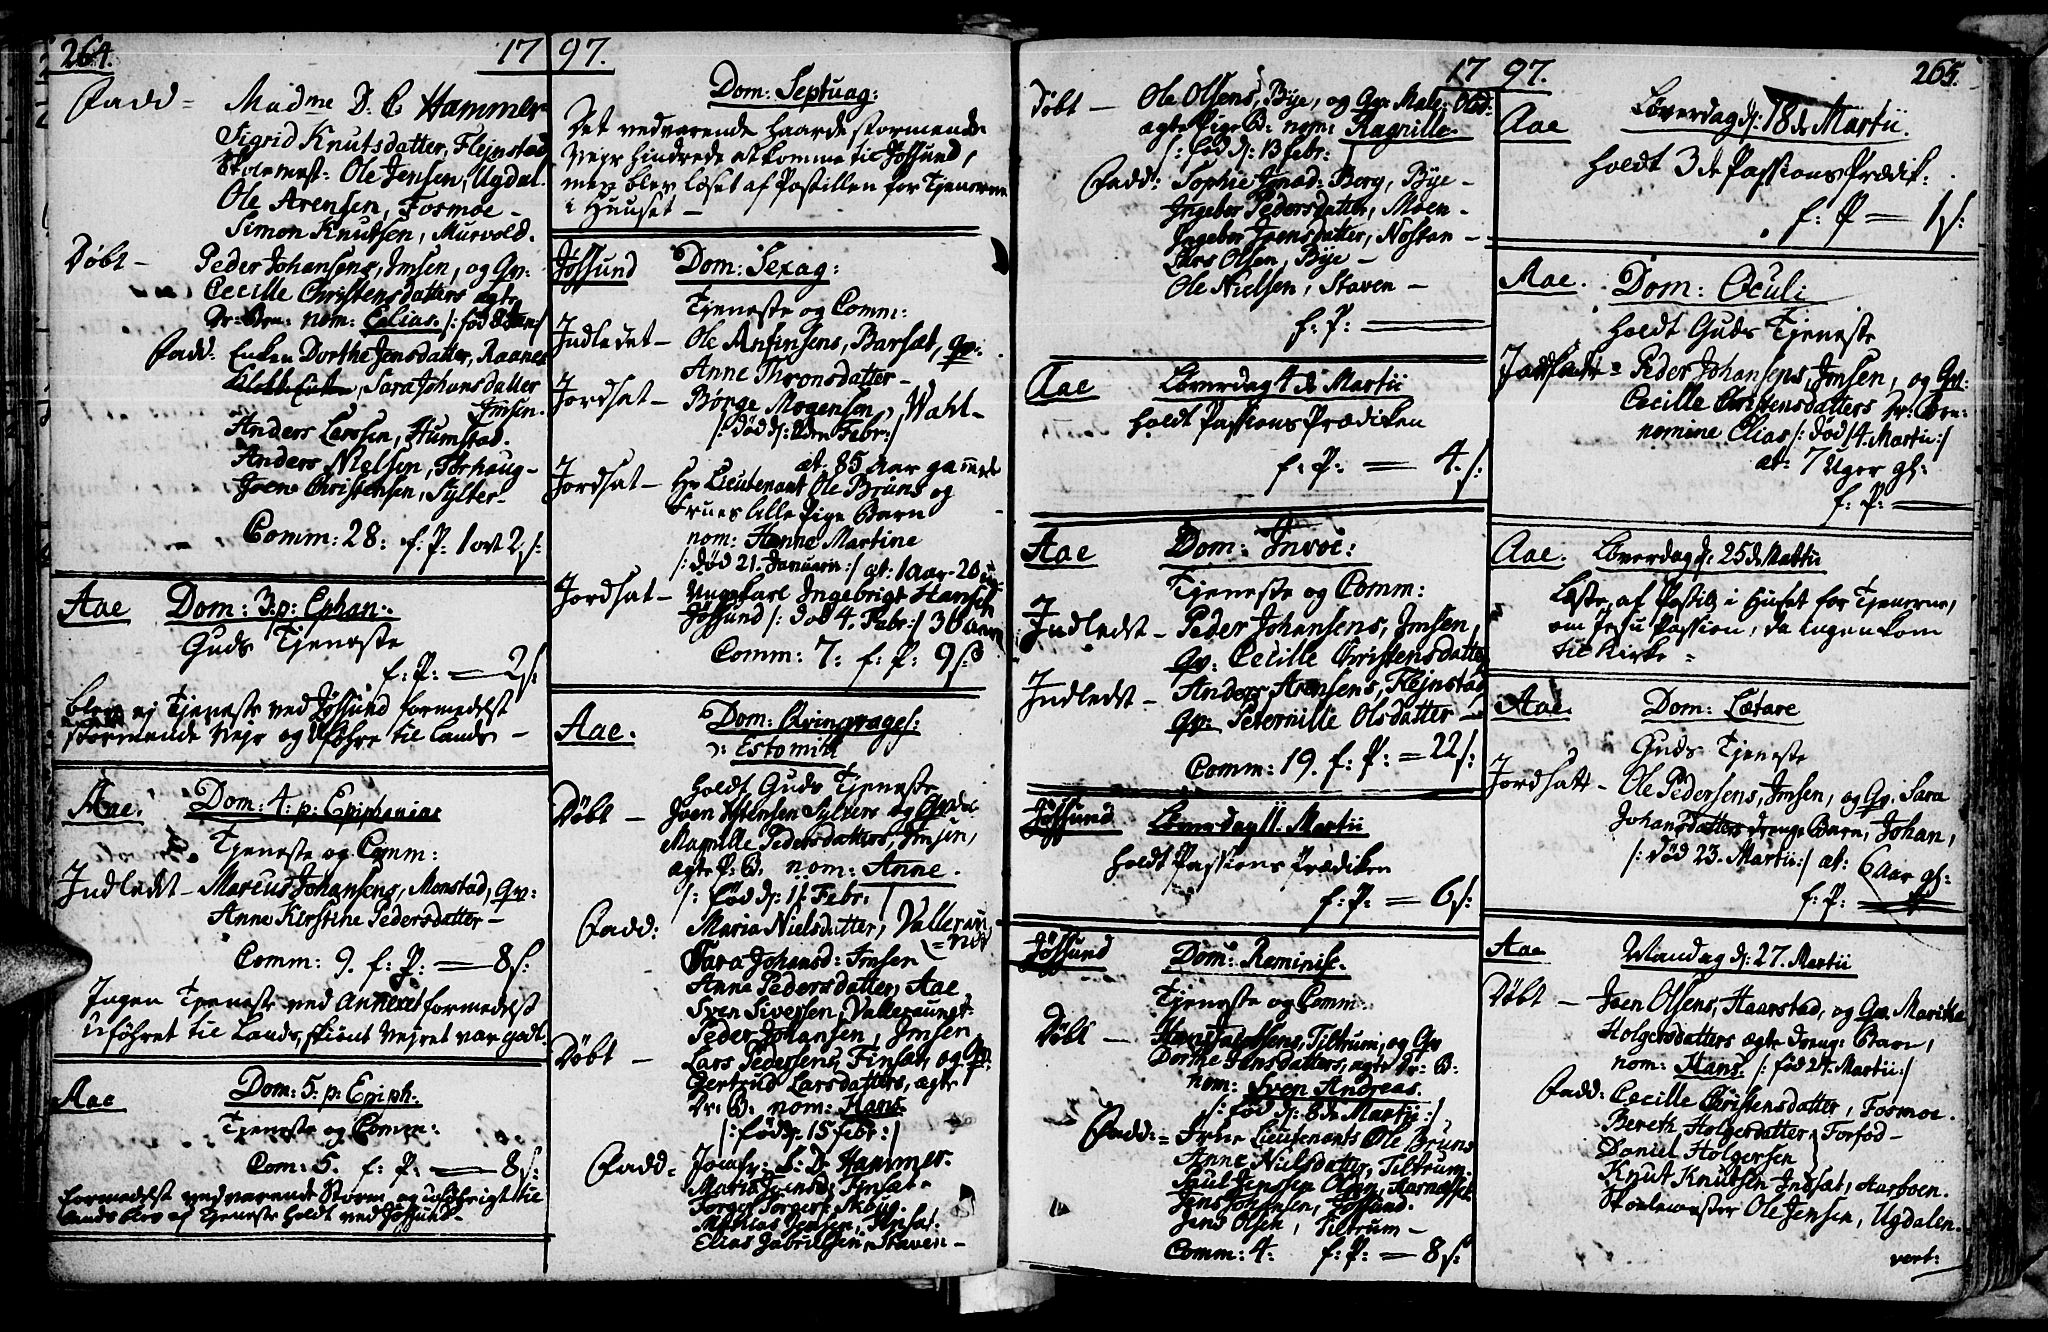 264.
17 97.
Fadd = Madme D. C. Hammer
Sigrid Knutsdatter, Flejnstad
Skolemest: Ole Jensen, Ugdal.
Ole Arensen, Fosmoe -
Simon Knutsen, Murvold.
Døbt - Peder Johansens, Imsen, og Qv:
Cecille Christensdatters ægte
Dr: Brn: nom: Elias. /: fød
Fadd: Enken Dorthe Jensdatter, Raanes
Sara Johansdatter
Imsen.
Anders Larssen, Humstad.
Anders Nielsen, Tørhaug -
Joen Christensen, Sylter -
Comm: 28: f: P: 1 ort 2 s:
Aae Dom: 3. p: Ephan:
Guds Tjeneste
f: P: = 2 s:
blev ej Tjeneste ved Jøssund formedelst
stormende Vejr og Uføhre til Lands -
Aae. Dom: 4: p: Epiphanias
Tjeneste og Comm:
Indledt - Marcus Johansens, Monstad, Qv:
Anne Kirstine Pedersdatter -
Comm: 9. f: P: = 8 s:
Ingen Tjeneste ved Annexet formedelst
Uføhret til Lands, skiønt Vejret var godt.
Aae Dom: 5. p: Epiph:
Tjeneste og Comm:
Com: 5. f: P: = 8 s:
formedelst vedvarende Storm og uføhrigt til
Lands blev ej Tjeneste holdt ved Jøssund -
Dom: Septuag:
Det vedvarende haarde stormende
Vejr hindrede at komme til Jøssund,
men blev læset af Postillen for Tjenerne
i Huuset -
Jøssund Dom: Sexag:
Tjeneste og Comm:
Indledet - Ole Anfinsens, Barsæt, Qv:
Anne Thronsdatter -
Jordsat - Børge Mogensen, Wahl -
/: død d: Febr: /
æt: 85 Aar gamel
Jordsat - Hr Lieutenant Ole Bruns og
Frues lille Pige Barn
nom: Hanne Martine
/: død 21. Januarii :/ æt: 1 Aar - 20
Jordsat - Ungekarl Ingebrigt Hansen
Jøssund /: død 4. Febr: / 30 aar
Comm: 7: f: P: 9 s:
Aae. Dom: Qvinqvages:
ↄ: Estomihi
holdt Guds Tjeneste
Døbt - Joen Sylters og Qv
Magnille Pedersdatters, Imsen,
ægte P: B. nom: Anne.
/: fød d: 11 Febr: /
Fadd: Maria Nielsdatter, Valleraun
Sara Johansd: Imsen
Anne Pedersdatter, Aae
Sven Siversen, Valleraunet
Peder Johansen, Imsen
Døbt - Lars Pedersens, Finsæt, og Qv:
Gertrud Larsdatters, ægte
Dr: B: nom: Hans.
/: fød d 15 Febr: /
Fadd = Jomfr: S: D. Hammer.
Matis Finsæt -
Torger Torgers:
Mathias Jensen, Finsæt:
Elias Gabrielsen, Staven -
17 97.
265.
Døbt - Ole Olsens, Bye, og Qv: Male: Olsd:
ægte Pige B: nom: Ragnille.
/: fød d: 13 Febr: /
Fadd: Sophie Berg, Bye -
Ingebor Pedersdatter, Moen -
Ingebor Joensdatter, Nostan -
Lars Olsen, Bye -
Ole Nielsen, Staven -
f: P: =
Aae Løverdag 4 de Martii
holdt Passions Prædiken
f: P: = 4. s:
Aae Dom: Invoc:
Tjeneste og Comm:
Indledt - Peder Johansens, Imsen,
Qv: Cecille Christensdatter
Indledt - Anders Arensens, Flejnstad
Qv: Peternille Olsdatter -
Comm: 19. f: P: = 22 s:
Jøssund Løverdag 11. Martii
holdt Passions Prædiken
f: P: = 6 s:
Jøssund Dom: Reminisc.
Tjeneste og Comm:
Døbt - Hans Jacobsens, Tiltrum, og Qv
Dorthe Jensdatters, ægte Dr: B:
nom: Sven Andreas.
/: fød d: 8 de Martii: /
Fadd: = Frue Lieutenants Ole Bruns
Anne Nielsdatter, Tiltrum.
Poul Jenssen Olden, Aarnæsset
Jens Johansen, Jøssund.
Jens Olsen, Tiltrum -
Comm: 4. f: P: = 8 s:
Aae Løverdag d: 18 de Martii.
holdt 3 de Passions Prædik:
f: P = 1 s:
Aae. Dom: Oculi
holdt Guds Tjeneste
Jordsatt = Peder Johansens Imsen, og Qv:
Cecille Christensdatters Dr: Brn:
nomine Elias /: død 14. Martii: /
æt: 7 Uger gl:
f: P: =
Aae. Løverdag d: 25 de Martii
Læste af Postill: i Huset for Tjenerne,
om Jesu Passion, da ingen kom
til Kirke =
Aae. Dom: Lætare
Guds Tjeneste
Jordsatt - Ole Pedersens, Imsen, og Qv. Sara
Johansdatters Drenge Barn, Johan,
/: død 23. Martii: / æt: 6 Aar gl:
f: P: =
Aae Mandag d: 27. Martii
Døbt - Joen Olsens, Haarstad, og Qv. Marithe
Holgersdatters ægte Dreng: Barn,
nom: Hans. /: fød 24. Martii: /
Fadd: Cecille Christensdatter, Fosmoe.
Bereth Holgersdatter, Torfod -
Daniel Holgersen
Knut Knutsen Indsæt, Aarboen.
Skolemester Ole Jensen, Ugdalen.
vert: